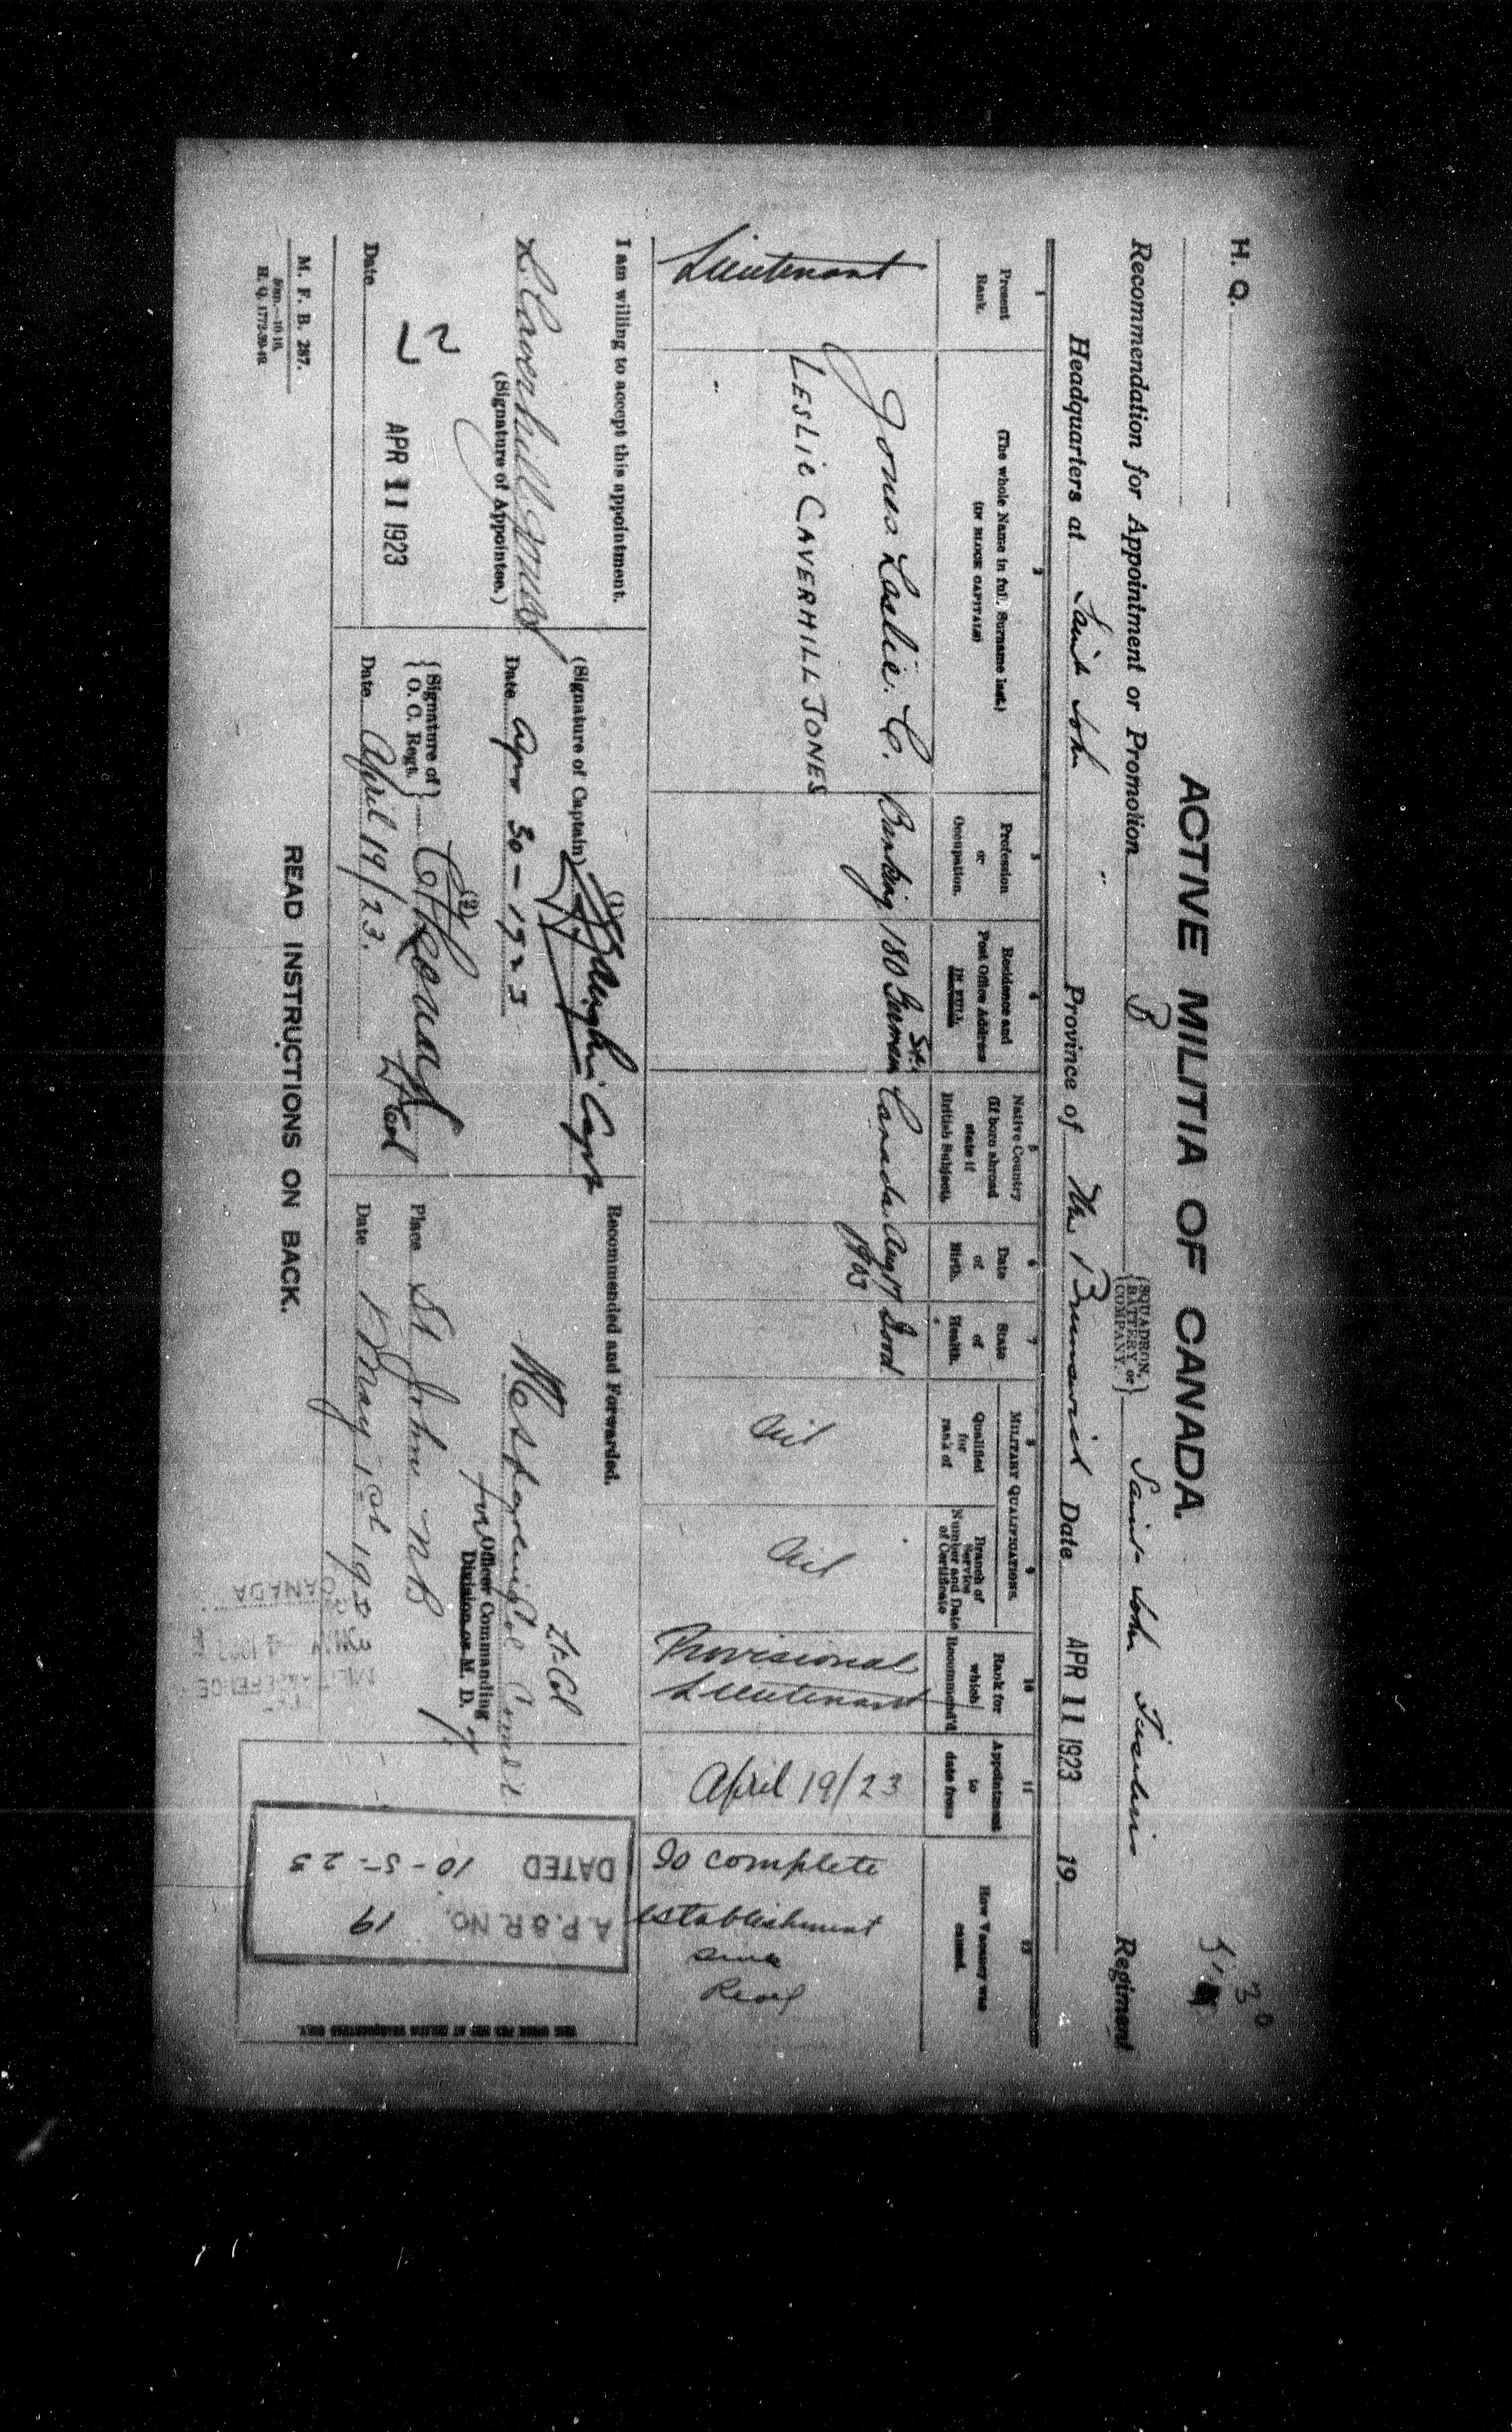 H. Q.
ACTIVE MILITIA OF CANADA.
Recommendation for Appointment or Promotion B {SQUADRON, BATTERY or COMPANY.} Saint John Fusiliers Regiment
Headquarters at Saint John Province of Brunswick Date APR 11 1923 19
1
Present Rank.
2
(The whole Name in full, Surname last.)
(IN BLOCK CAPITALS)
3
Profession or Occupation.
4
Residence and Post Office Address IN FULL
5
Native Country (If born abroad state if British Subject).
6
Date of Birth.
7
State of Health.
MILITARY QUALIFICATIONS.
8
Qualified for rank of
9
Branch of Service Number and Date of Certificate
10
Rank for which Recommend'd
11
Appointment to date from
12
How Vacancy was caused.
Lieutenant
Jones Leslie. C.
LESLIE CAVERHILL JONES
Banking
180 Germain St.
Canada
Aug 17 1903
Good
Nil
Nil
Provisional Lieutenant
April 19/23
To complete
establishment
since
I am willing to accept this appointment.
L Caverhill Jones
(Signature of Appointee.)
Date APR 11 1923
(1)
(Signature of Captain) Capt
Date Apr 30 - 1923
(2)
{Signature of O. C. Regt.} Lt Col
Date April 19/23.
Recommended and Forwarded.
Lt-Col
for Officer Commanding
Division or M. D. 7.
Place St John NB
Date May 1st 1923
A.P.& R. NO. 19
DATED 10-5-23
THIS SPACE FOR USE AT MILITIA HEADQUARTERS ONLY.
CANADA
M. F. B. 287.
H. Q. 1772-39-49.
READ INSTRUCTIONS ON BACK.